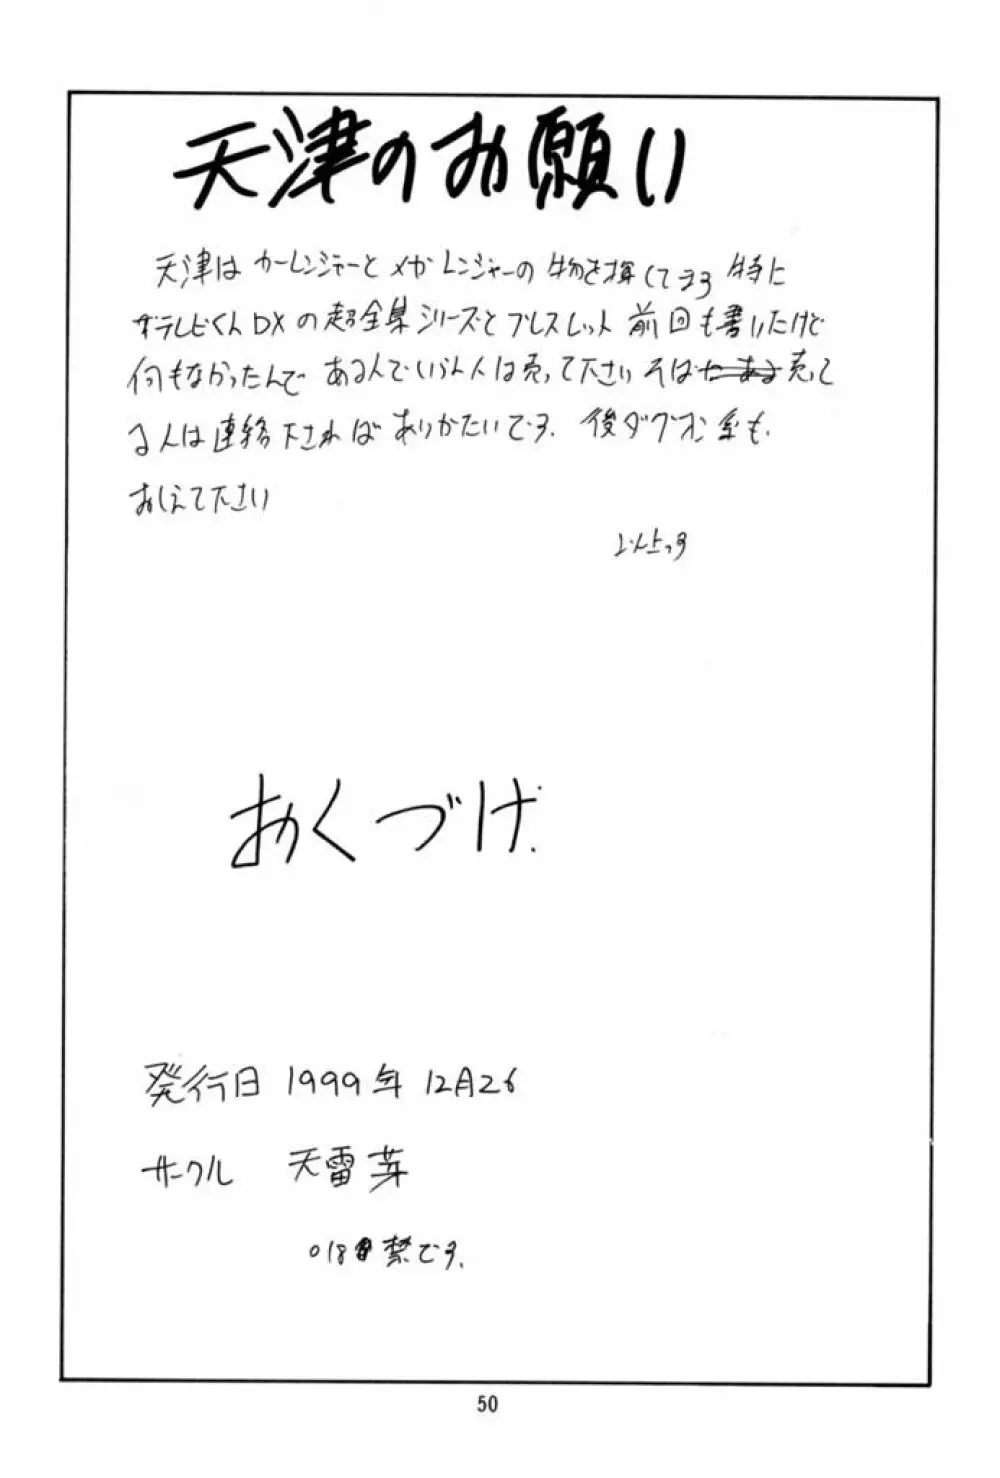 天津のお願い
天津はカーレンジャーとメガレンジャーの物を探してます 特に
ザテレビくんDXの超全集シリーズとブレスレット 前回も書いたけど
何もなかったんで ある人でいらん人は売って下さい そば 売って
る人は連絡下さればありがたいです。後ダグオン系も
おしえて下さい
以上っす
おくづけ.
発行日 1999年 12月26
サークル 天雷芽
○18禁です.
50